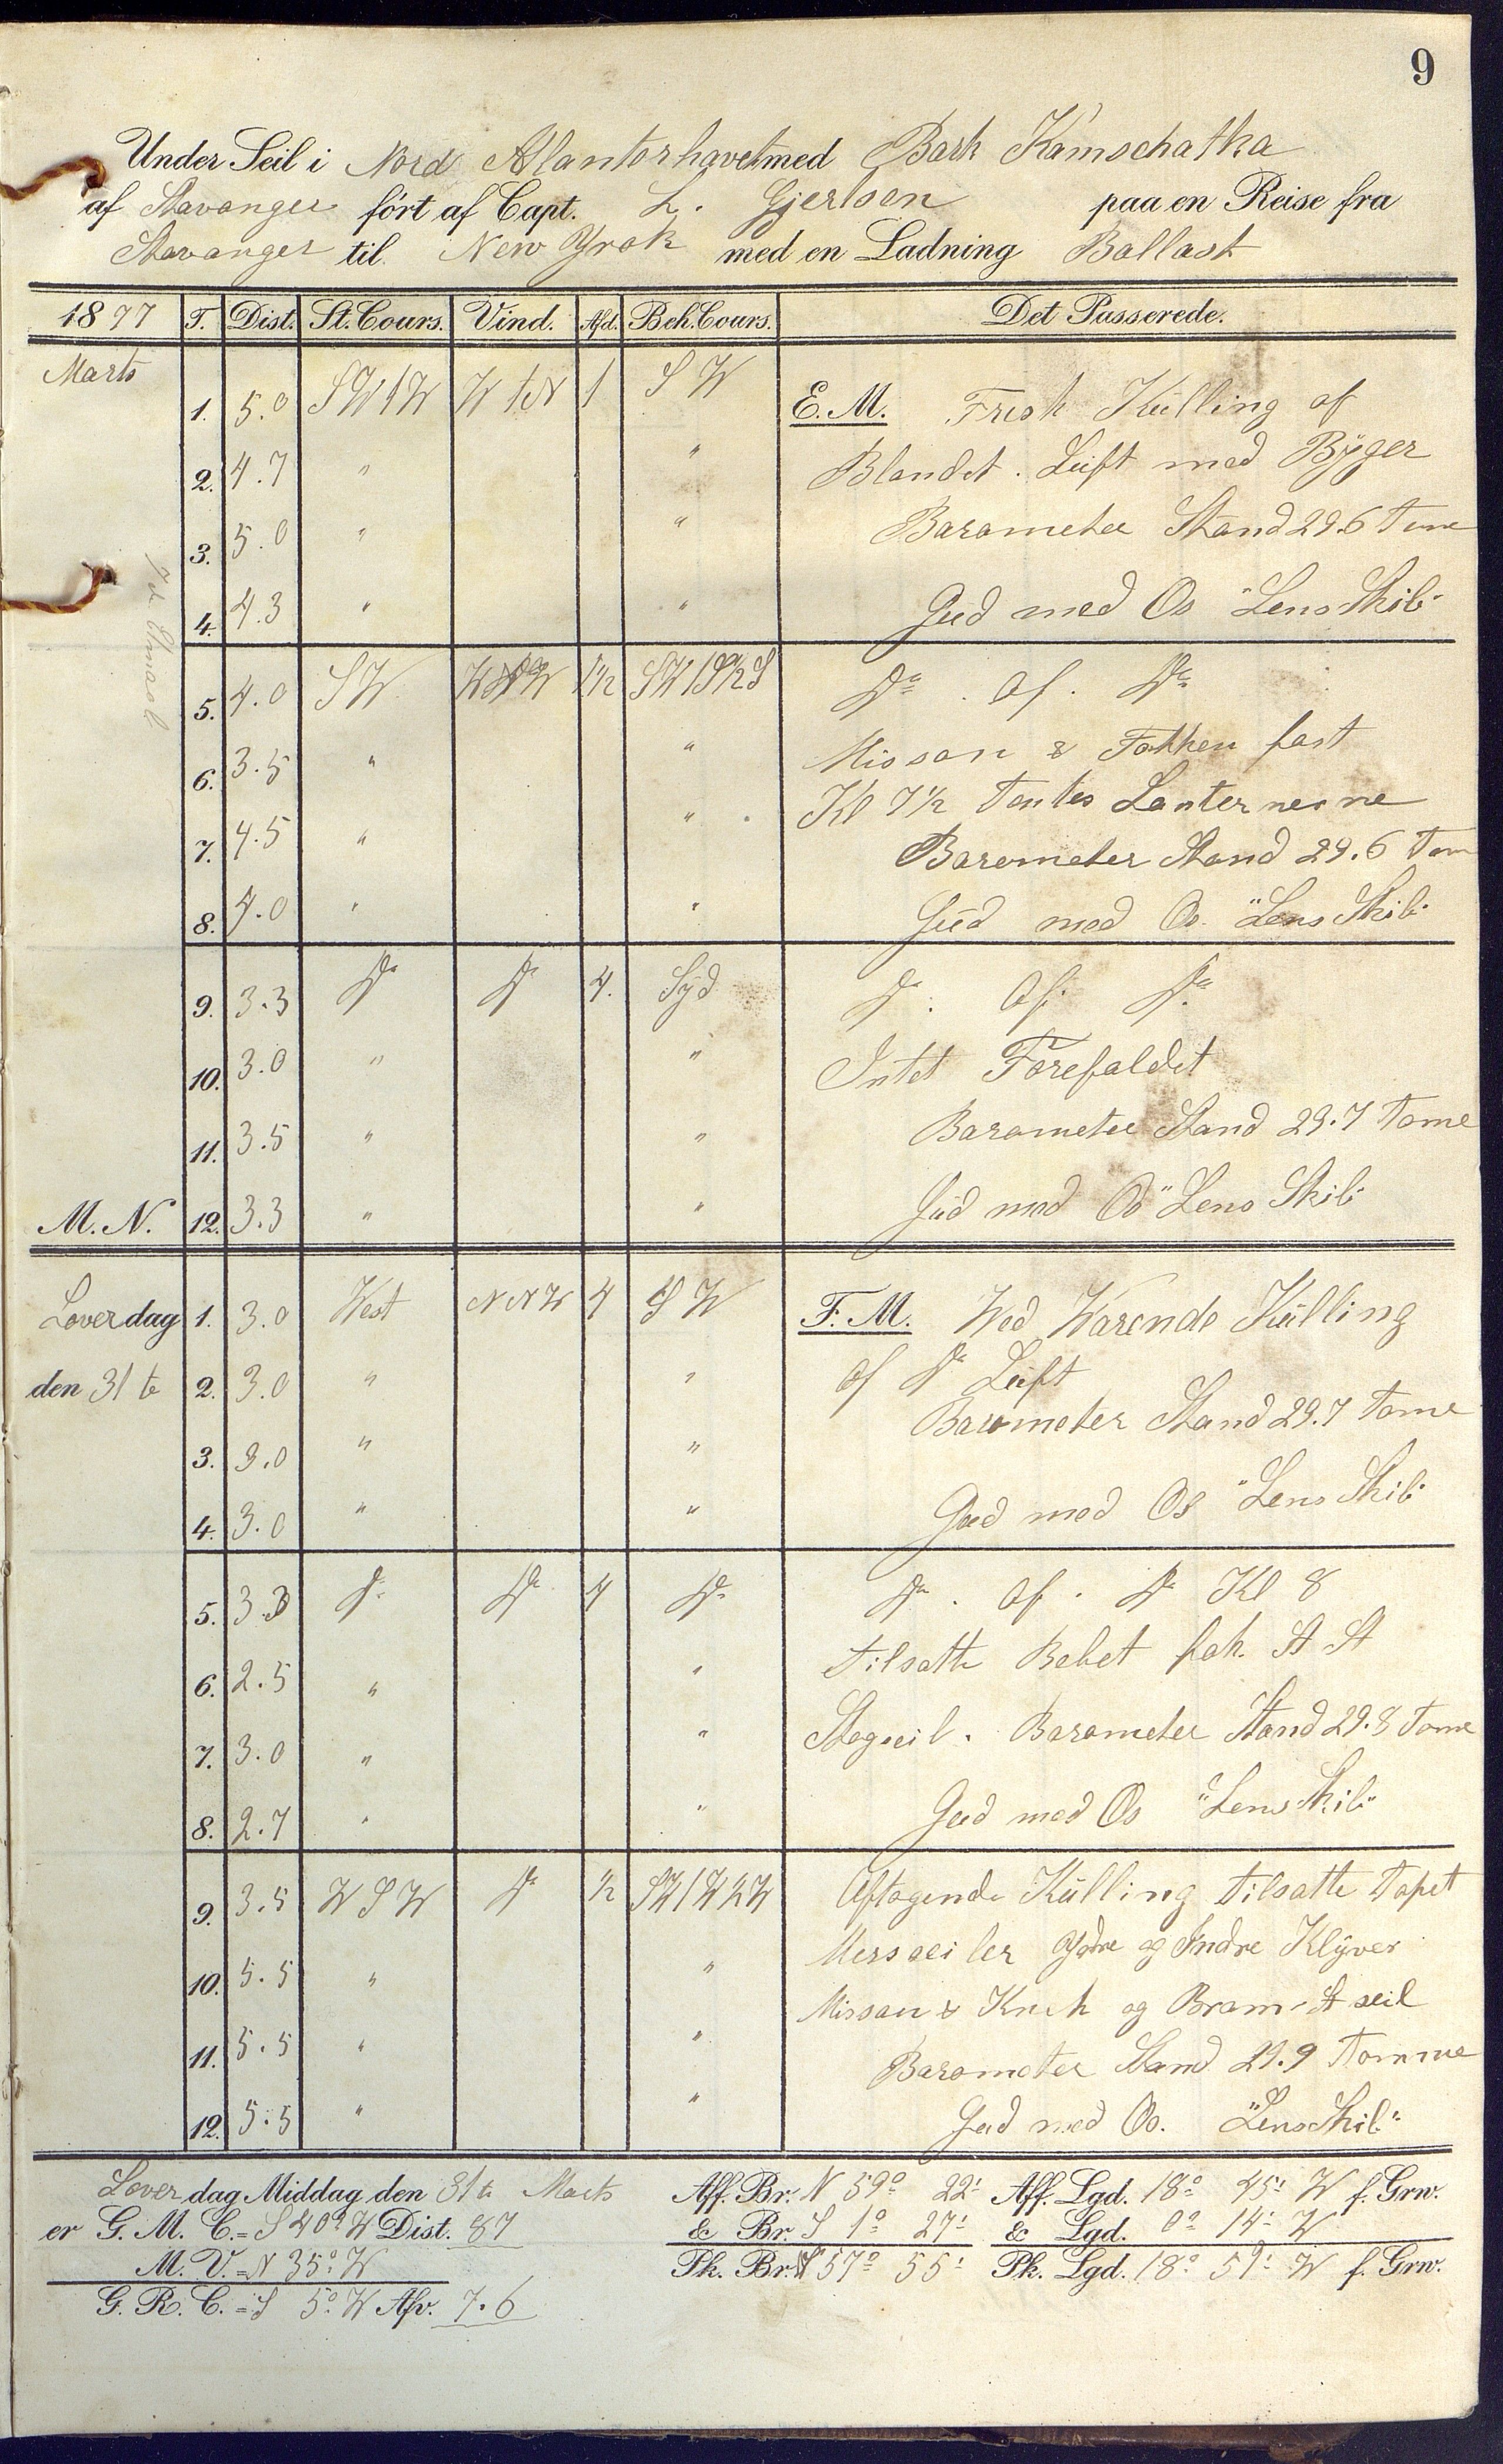 9
Under Seil i Nord Atlanterhavet med Bark Kamschatka
af Stavanger ført af Capt. L. Gjertsen paa en Reise fra
Stavanger til New Yrok med en Ladning Ballast
1877 T. Dist. St. Cours. Vind. Afd. Beh. Cours. Det Passerede.
Marts
1. 5.0 SWtW WtN 1 SW E.M. Frisk Kulling af
2. 4.7 " " Blandet. Luft med Byger
3. 5.0 " " Barometer Stand 29.6 Tome
4. 4.3 " " Gud med Os "Lens Skib"
5. 4.0 SW 1½ Do. af. Do.
6. 3.5 " " Missan & Fokken fast
7. 4.5 " " Kl 7½ Tentes Lanternerne
Barometer Stand 29.6 Tom
8. 4.0 " " Gud med Os "Lens Skib"
9. 3.3 Do Do 4. Syd Do. af. Do.
10. 3.0 " " Intet Forefaldet
11. 3.5 " " Barometer Stand 29.7 Tome
M.N. 12. 3.3 " " Gud med Os "Lens Skib"
Loverdag 1. 3.0 West NNW 4 SW F.M. Wed Warende Kulling
den 31te 2. 3.0 " " af Do Luft
Barometer Stand 29.7 Tome
3. 3.0 " "
4. 3.0 " " Gud med Os "Lens Skib"
5. 3.3 Do Do 4 Do Do. af. Do Kl 8
6. 2.5 " " tilsatte St St
7. 3.0 " " Stagseil. Barometer Stand 29.8 Tome
8. 2.7 " " Gud med Os "Lens Skib"
9. 3.5 WSW Do ½ SWtW½W Aftagende Kulling tilsatte Topet
10. 5.5 " " Mersseiler Ydre og Indre Klyver
11. 5.5 " " Missan & og Bram-St seil
Barometer Stand 29.9 Tomme
12. 5.5 " " Gud med Os. "Lens Skib"
Loverdag Middag den 31te Marts Aff. Br. N 59° 22' Aff. Lgd. 18° 45' W f. Grw.
er G. M. C. = S 40° W Dist. 87 & Br. S 1° 27' & Lgd. 0° 14' W
M. V. = N 35° W Pk. Br. N 57° 55' Pk. Lgd. 18° 59' W f. Grw.
G. R. C. = S 5° W Afv. 7.6